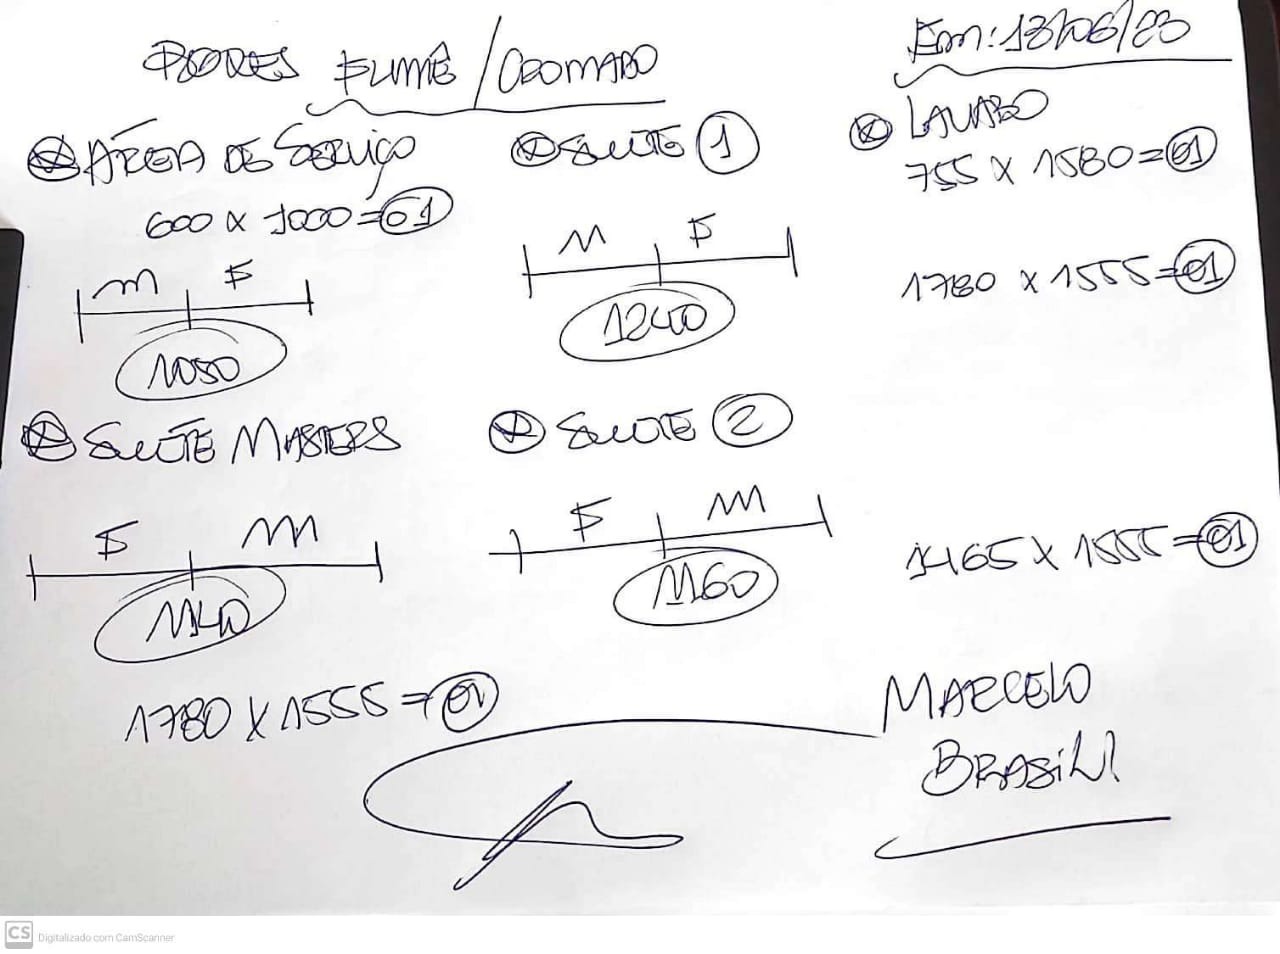 BOXES FUMÊ / CROMADO
Em: 13/06/23
ÁREA DE SERVIÇO
600 X 1000 = 01
M F
1050
SUÍTE 1
M F
1240
LAVABO
755 X 1580 = 01
1780 X 1555 = 01
SUÍTE MASTERS
F M
1140
1780 X 1555 = 01
SUÍTE 2
F M
1160
1465 X 1555 = 01
MARCELO
BRASIL
CS Digitalizado com CamScanner